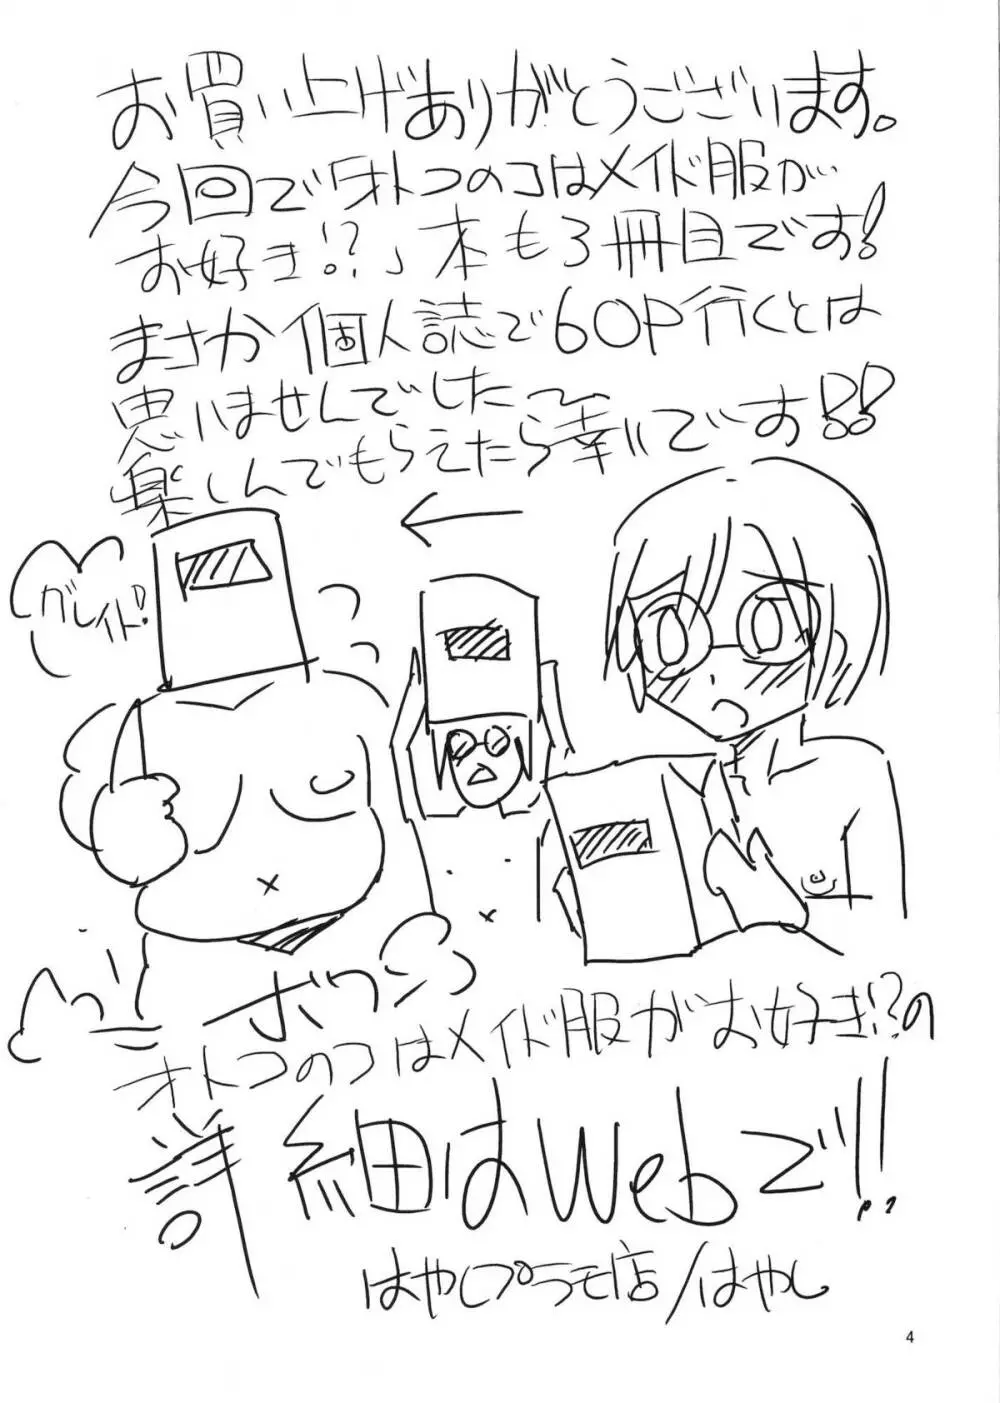 お買い上げありがとうございます。
今回で「オトコのコはメイド服が
お好き!?」本も3冊目です!
まさか個人誌で60P行くとは
思いませんでした〜
楽しんでもらえたら幸いです!!
←
ガレイド!
ボワン
オトコのコはメイド服がお好き!?の
詳細はWebで!!
はやしプラモ店/はやし
4